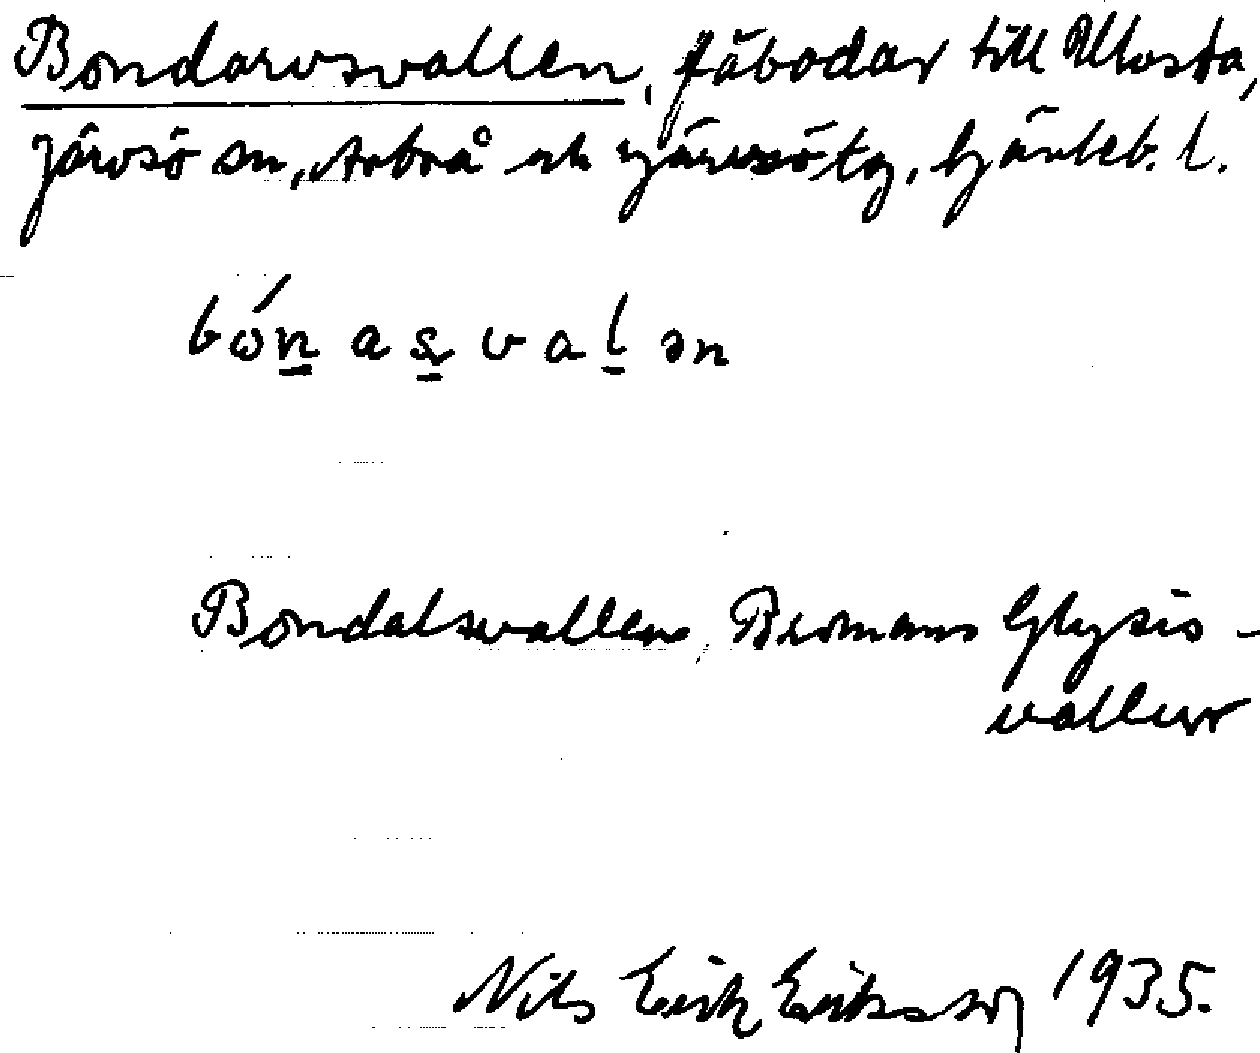 Bondarvsvallen, fäbodar till Ulvsta,
Järvsö sn, Arbrå och Järvsö tg, Gävleb. l.
bónasvalən
Bondalsvallen, Bromans Glysis-
vallur
Nils Erik Eriksson 1935.